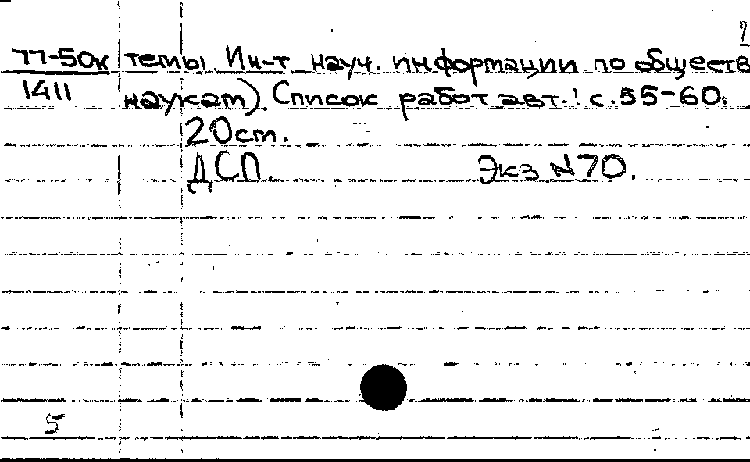 77-50к темы Ин-т науч. информации по обществ
1411 наукам). Список работ авт.: с. 55-60.
20 cm.
ДСП. Экз N 70.
5